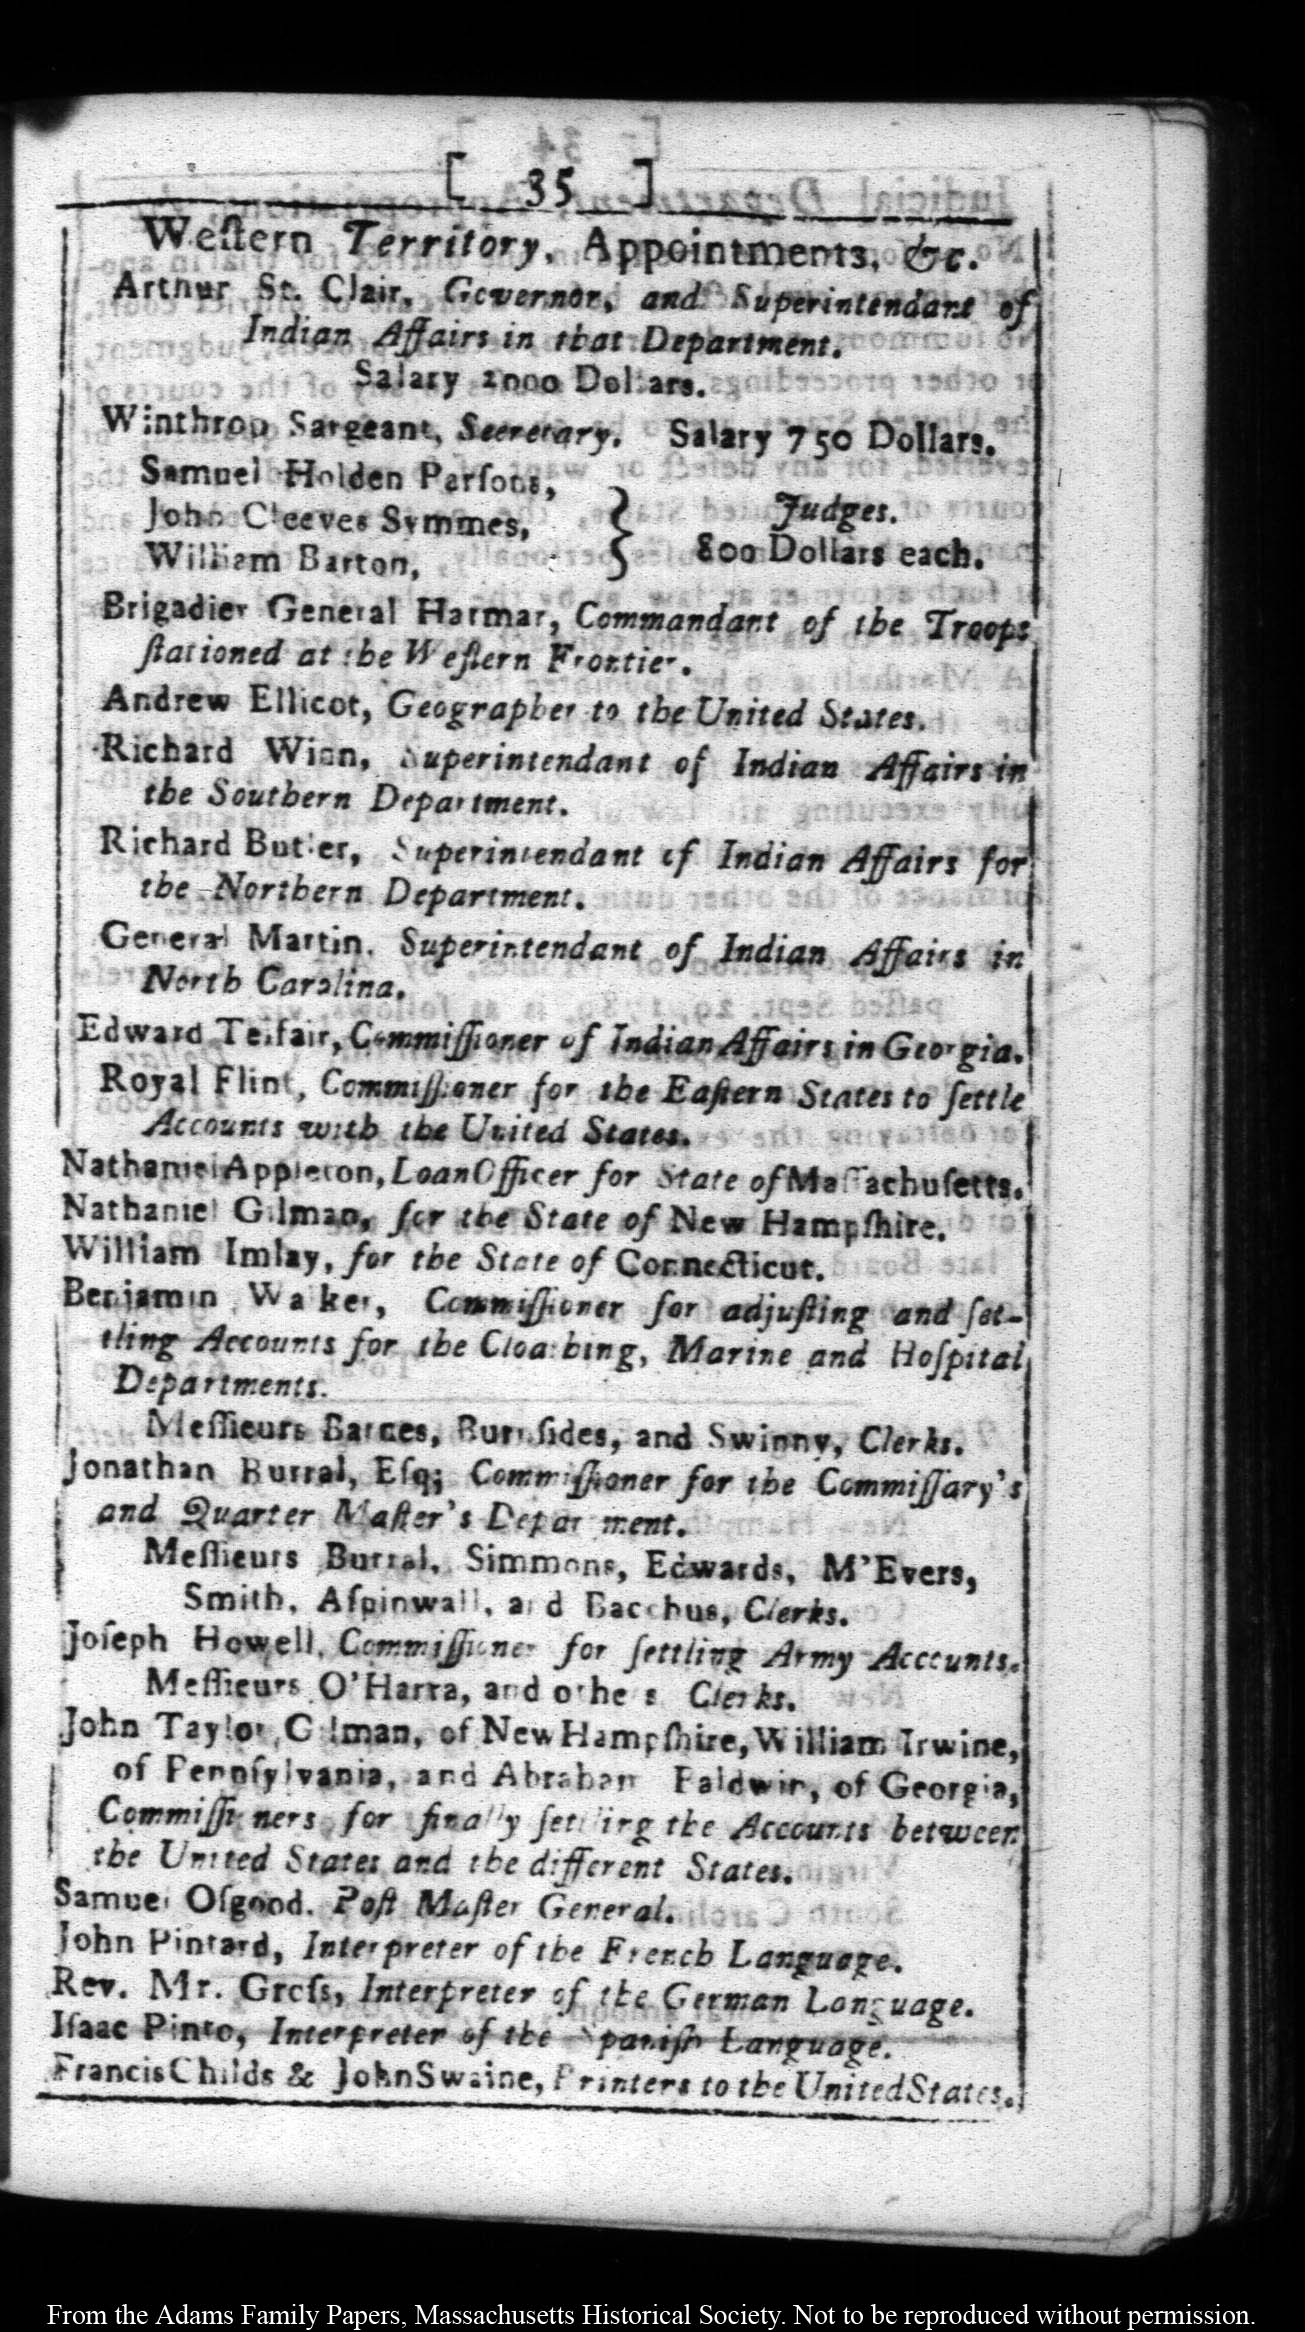 [ 35 ]
Weſtern Territory, Appointments, &c.
Arthur St. Clair, Governor, and Superintendant of
Indian Affairs in that Department.
Salary 2000 Dollars.
Winthrop Sargeant, Secretary. Salary 750 Dollars.
Samuel Holden Parſons,
John Cleeves Symmes,
William Barton,
} Judges.
800 Dollars each.
Brigadier General Harmar, Commandant of the Troops
ſtationed at the Weſtern Frontier.
Andrew Ellicot, Geographer to the United States.
Richard Winn, Superintendant of Indian Affairs in
the Southern Department.
Richard Butler, Superintendant of Indian Affairs for
the Northern Department.
General Martin, Superintendant of Indian Affairs in
North Carolina.
Edward Telfair, Commiſſioner of Indian Affairs in Georgia.
Royal Flint, Commiſſioner for the Eaſtern States to ſettle
Accounts with the United States.
Nathaniel Appleton, Loan Officer for State of Maſſachuſetts.
Nathaniel Gilman, for the State of New Hampſhire.
William Imlay, for the State of Connecticut.
Benjamin Walker, Commiſſioner for adjuſting and ſet-
tling Accounts for the Cloathing, Marine and Hoſpital
Departments.
Meſſieurs Barnes, Burnſides, and Swinny, Clerks.
Jonathan Burral, Eſq; Commiſſioner for the Commiſſary's
and Quarter Maſter's Department.
Meſſieurs Burral, Simmons, Edwards, M'Evers,
Smith, Aſpinwall, and Bacchus, Clerks.
Joſeph Howell, Commiſſioner for ſettling Army Accounts.
Meſſieurs O'Harra, and others Clerks.
John Taylor Gilman, of New Hampſhire, William Irwine,
of Pennſylvania, and Abraham Baldwin, of Georgia,
Commiſſioners for finally ſettling the Accounts between
the United States and the different States.
Samuel Oſgood, Poſt Maſter General.
John Pintard, Interpreter of the French Language.
Rev. Mr. Groſs, Interpreter of the German Language.
Iſaac Pinto, Interpreter of the Spaniſh Language.
Francis Childs & John Swaine, Printers to the United States.
From the Adams Family Papers, Massachusetts Historical Society. Not to be reproduced without permission.